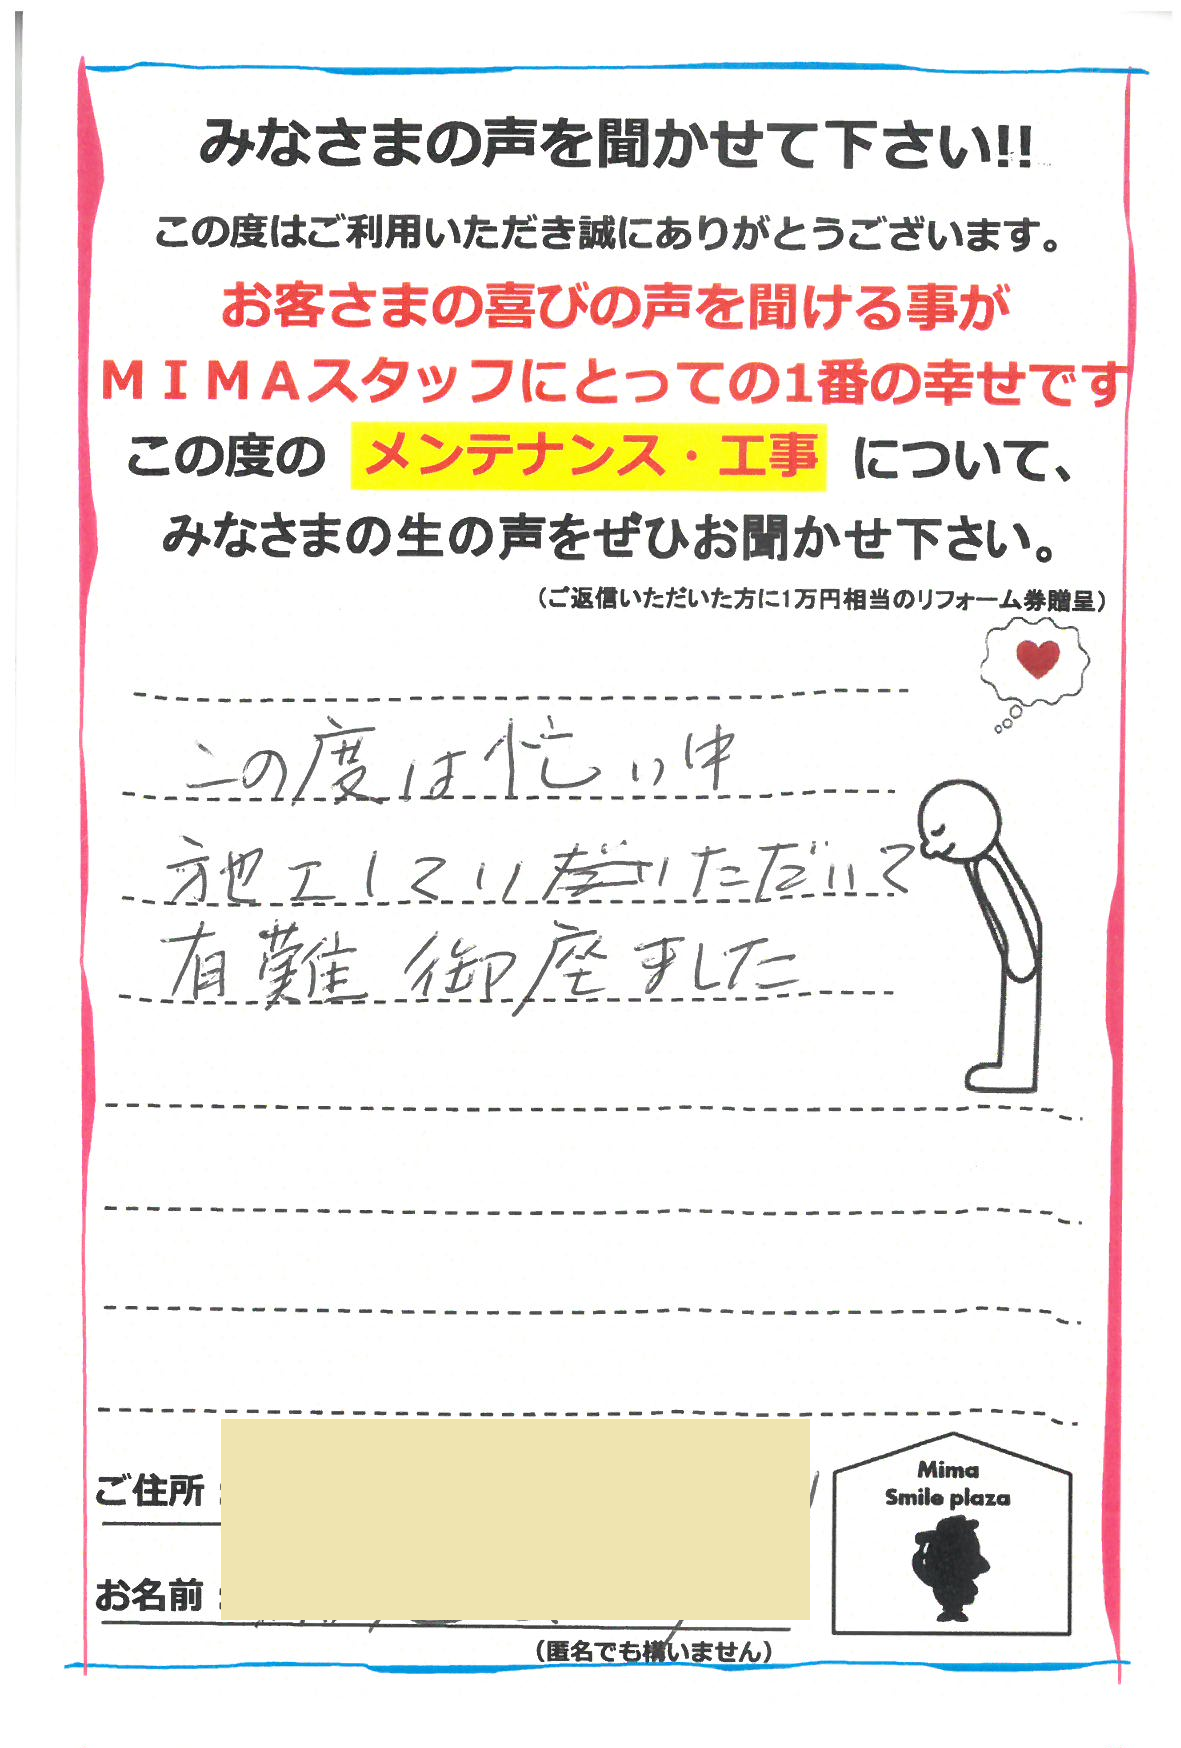 みなさまの声を聞かせて下さい!!
この度はご利用いただき誠にありがとうございます。
お客さまの喜びの声を聞ける事が
ＭＩＭＡスタッフにとっての1番の幸せです
この度の メンテナンス・工事 について、
みなさまの生の声をぜひお聞かせ下さい。
（ご返信いただいた方に1万円相当のリフォーム券贈呈）
この度は忙い中
施工してい いただいて
有難御座ました
ご住所：
Mima
Smile plaza
お名前：
（匿名でも構いません）